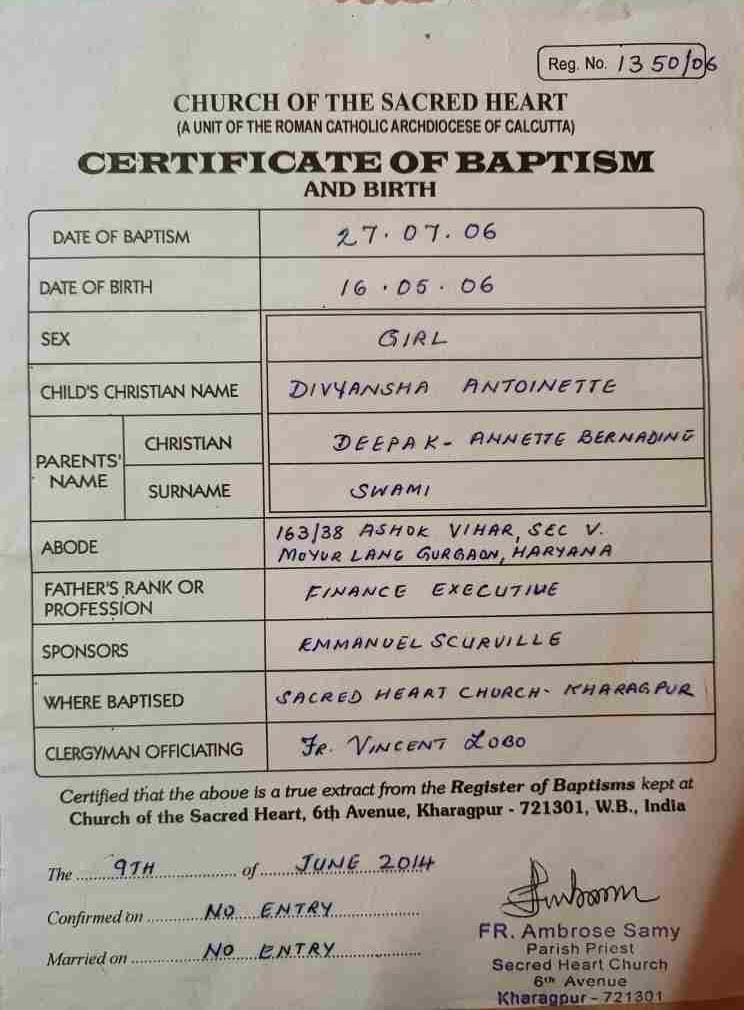 Reg. No. 1350/06
CHURCH OF THE SACRED HEART
(A UNIT OF THE ROMAN CATHOLIC ARCHDIOCESE OF CALCUTTA)
CERTIFICATE OF BAPTISM
AND BIRTH
DATE OF BAPTISM 27.07.06
DATE OF BIRTH 16.05.06
SEX GIRL
CHILD'S CHRISTIAN NAME DIVYANSHA ANTOINETTE
PARENTS' NAME CHRISTIAN DEEPAK- ANNETTE BERNADINE
SURNAME SWAMI
ABODE 163/38 ASHOK VIHAR, SEC V.
MOYUR LANE GURGAON, HARYANA
FATHER'S RANK OR
PROFESSION FINANCE EXECUTIVE
SPONSORS EMMANUEL SCURVILLE
WHERE BAPTISED SACRED HEART CHURCH- KHARAGPUR
CLERGYMAN OFFICIATING FR. VINCENT LOBO
Certified that the above is a true extract from the Register of Baptisms kept at
Church of the Sacred Heart, 6th Avenue, Kharagpur - 721301, W.B., India
The 9TH of JUNE 2014
Confirmed on NO ENTRY
Married on NO ENTRY
FR. Ambrose Samy
Parish Priest
Sacred Heart Church
6th Avenue
Kharagpur - 721301